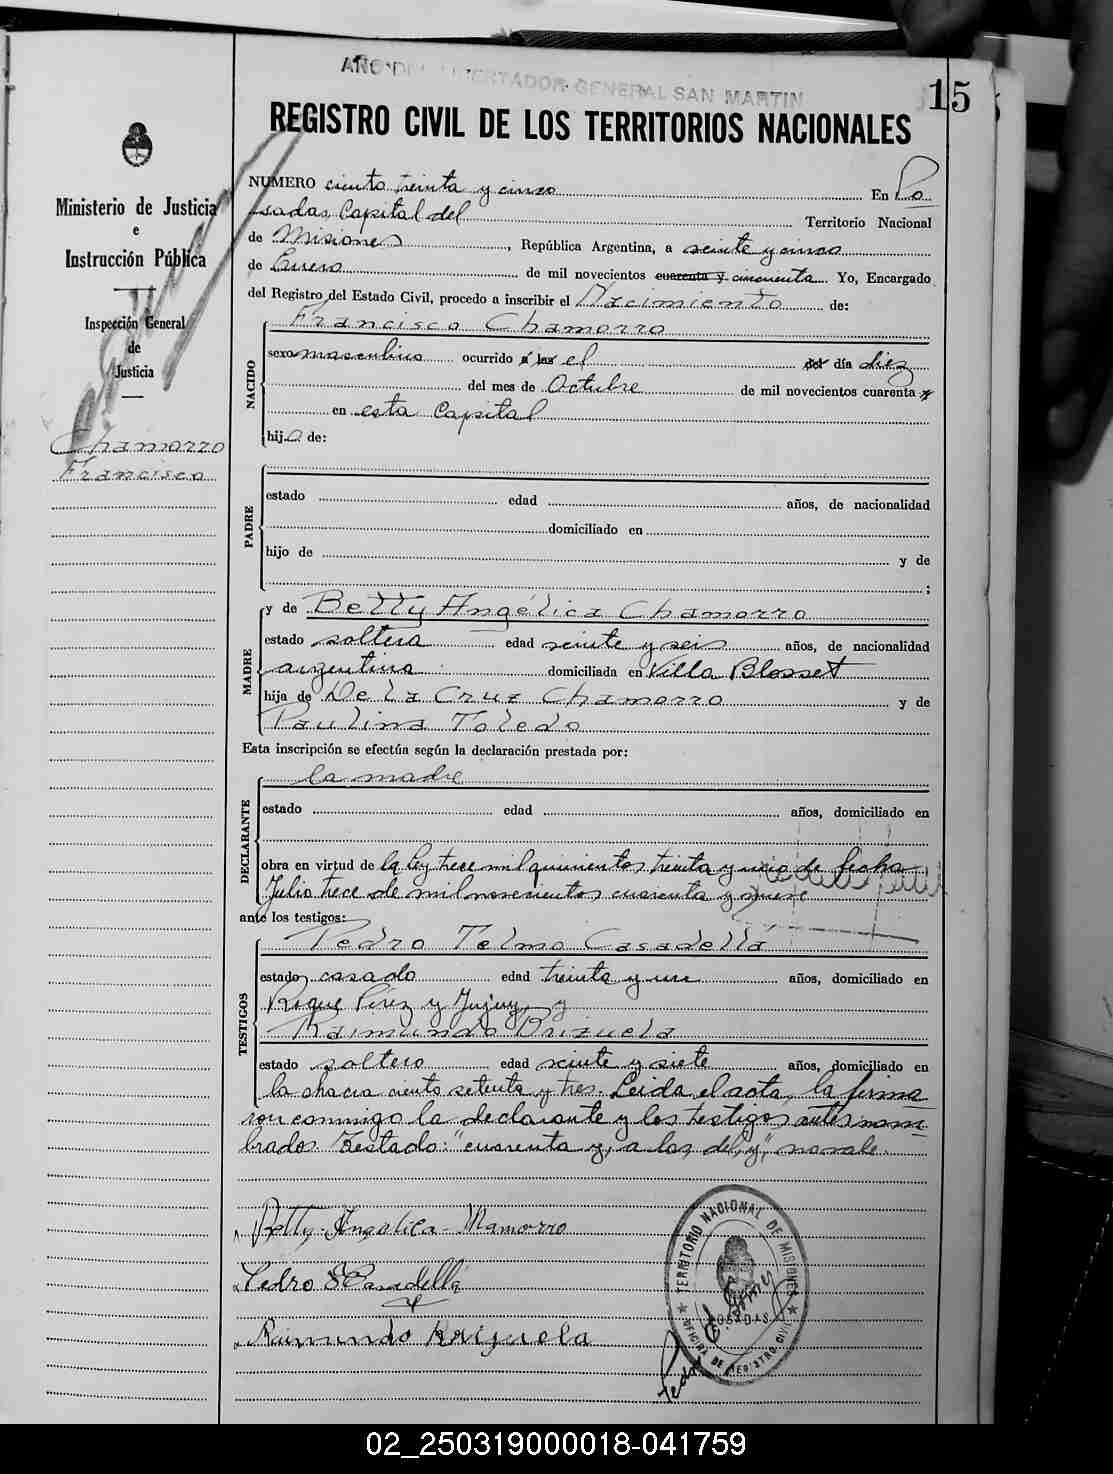 AÑO DEL LIBERTADOR GENERAL SAN MARTIN
15
REGISTRO CIVIL DE LOS TERRITORIOS NACIONALES
Ministerio de Justicia
e
Instrucción Pública
Inspección General
de
Justicia
Chamorro
Francisco
NUMERO ciento treinta y cinco En Po
sadas, Capital del Territorio Nacional
de Misiones, República Argentina, a veinte y cinco
de Enero de mil novecientos cuarenta y cincuenta. Yo, Encargado
del Registro del Estado Civil, procedo a inscribir el Nacimiento de:
Francisco Chamorro
NACIDO
sexo masculino ocurrido a las el del día diez
del mes de Octubre de mil novecientos cuarenta y
en esta Capital
hijo de:
PADRE
estado edad años, de nacionalidad
domiciliado en
hijo de y de
;
MADRE
y de Betty Angélica Chamorro
estado soltera edad veinte y seis años, de nacionalidad
argentina domiciliada en Villa Blosset
hija de De la Cruz Chamorro y de
Paulina Toledo
Esta inscripción se efectúa según la declaración prestada por:
DECLARANTE
la madre
estado edad años, domiciliado en
obra en virtud de la Ley trece mil quinientos treinta y de fecha
Julio trece de mil novecientos cuarenta y nueve
ante los testigos:
TESTIGOS
Pedro Telmo Casadella
estado casado edad treinta y un años, domiciliado en
Roque Pérez y Jujuy, y
Raimundo Brizuela
estado soltero edad veinte y siete años, domiciliado en
la chacra ciento setenta y tres. Leida el acta, la firma
ron conmigo la declarante y los testigos antes nom-
brados. Testado: "cuarenta y, a las, del, y", no vale.
Betty Angelica Chamorro
Pedro T Casadella
Raimundo Brizuela
TERRITORIO NACIONAL DE MISIONES
POSADAS
OFICINA DE REGISTRO CIVIL
Pedro
02_250319000018-041759